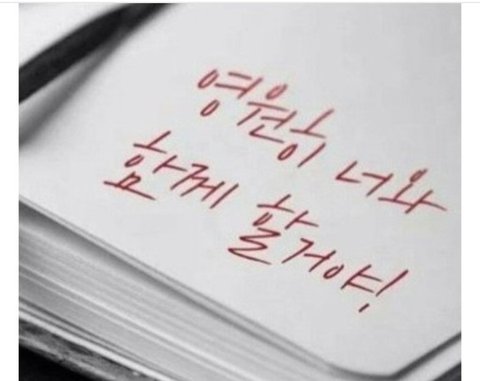 영원히 너와
함께 할거야!